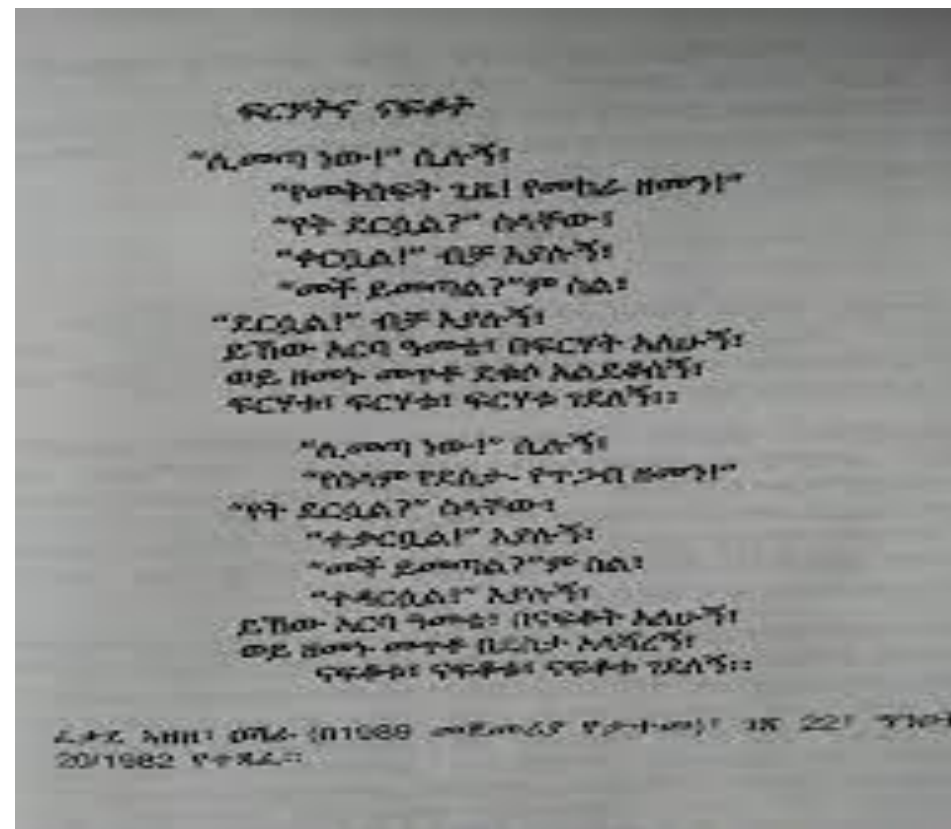 ፍርሃትና ናፍቆት
“ሊመጣ ነው!” ሲሉኝ፣
“የመቅሰፍት ጊዜ! የመከራ ዘመን!”
“የት ደርሷል?” ስላቸው፣
“ቀርቧል!” ብቻ እያሉኝ፣
“መች ይመጣል?”ም ስል፣
“ደርሷል!” ብቻ እያሉኝ፣
ይኸው አርባ ዓመቴ፣ በፍርሃት አለሁኝ፣
ወይ ዘመኑ መጥቶ ደቁሶ አልደቆሰኝ፣
ፍርሃቱ፣ ፍርሃቱ፣ ፍርሃቱ ገደለኝ፡፡
“ሊመጣ ነው!” ሲሉኝ፣
“የሰላም የደስታ- የጥጋብ ዘመን!”
“የት ደርሷል?” ስላቸው፣
“ተቃርቧል!” እያሉኝ፣
“መች ይመጣል?”ም ስል፣
“ተዳርሷል!” እያሉኝ፣
ይኸው አርባ ዓመቴ፣ በናፍቆት አለሁኝ፣
ወይ ዘመኑ መጥቶ በደስታ አላሻረኝ፣
ናፍቆቱ፣ ናፍቆቱ፣ ናፍቆቱ ገደለኝ፡፡
ፈቃደ አዘዘ፣ (በ1988 መጀመሪያ የታተመ)፣ ገጽ 22፣
20/1982 የተጻፈ፡፡